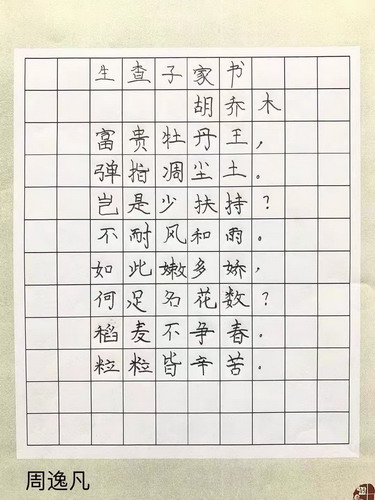 生查子家书
胡乔木
富贵牡丹王，
弹指凋尘土。
岂是少扶持？
不耐风和雨。
如此嫩多娇，
何足名花数？
稻麦不争春．
粒粒皆辛苦．
周逸凡